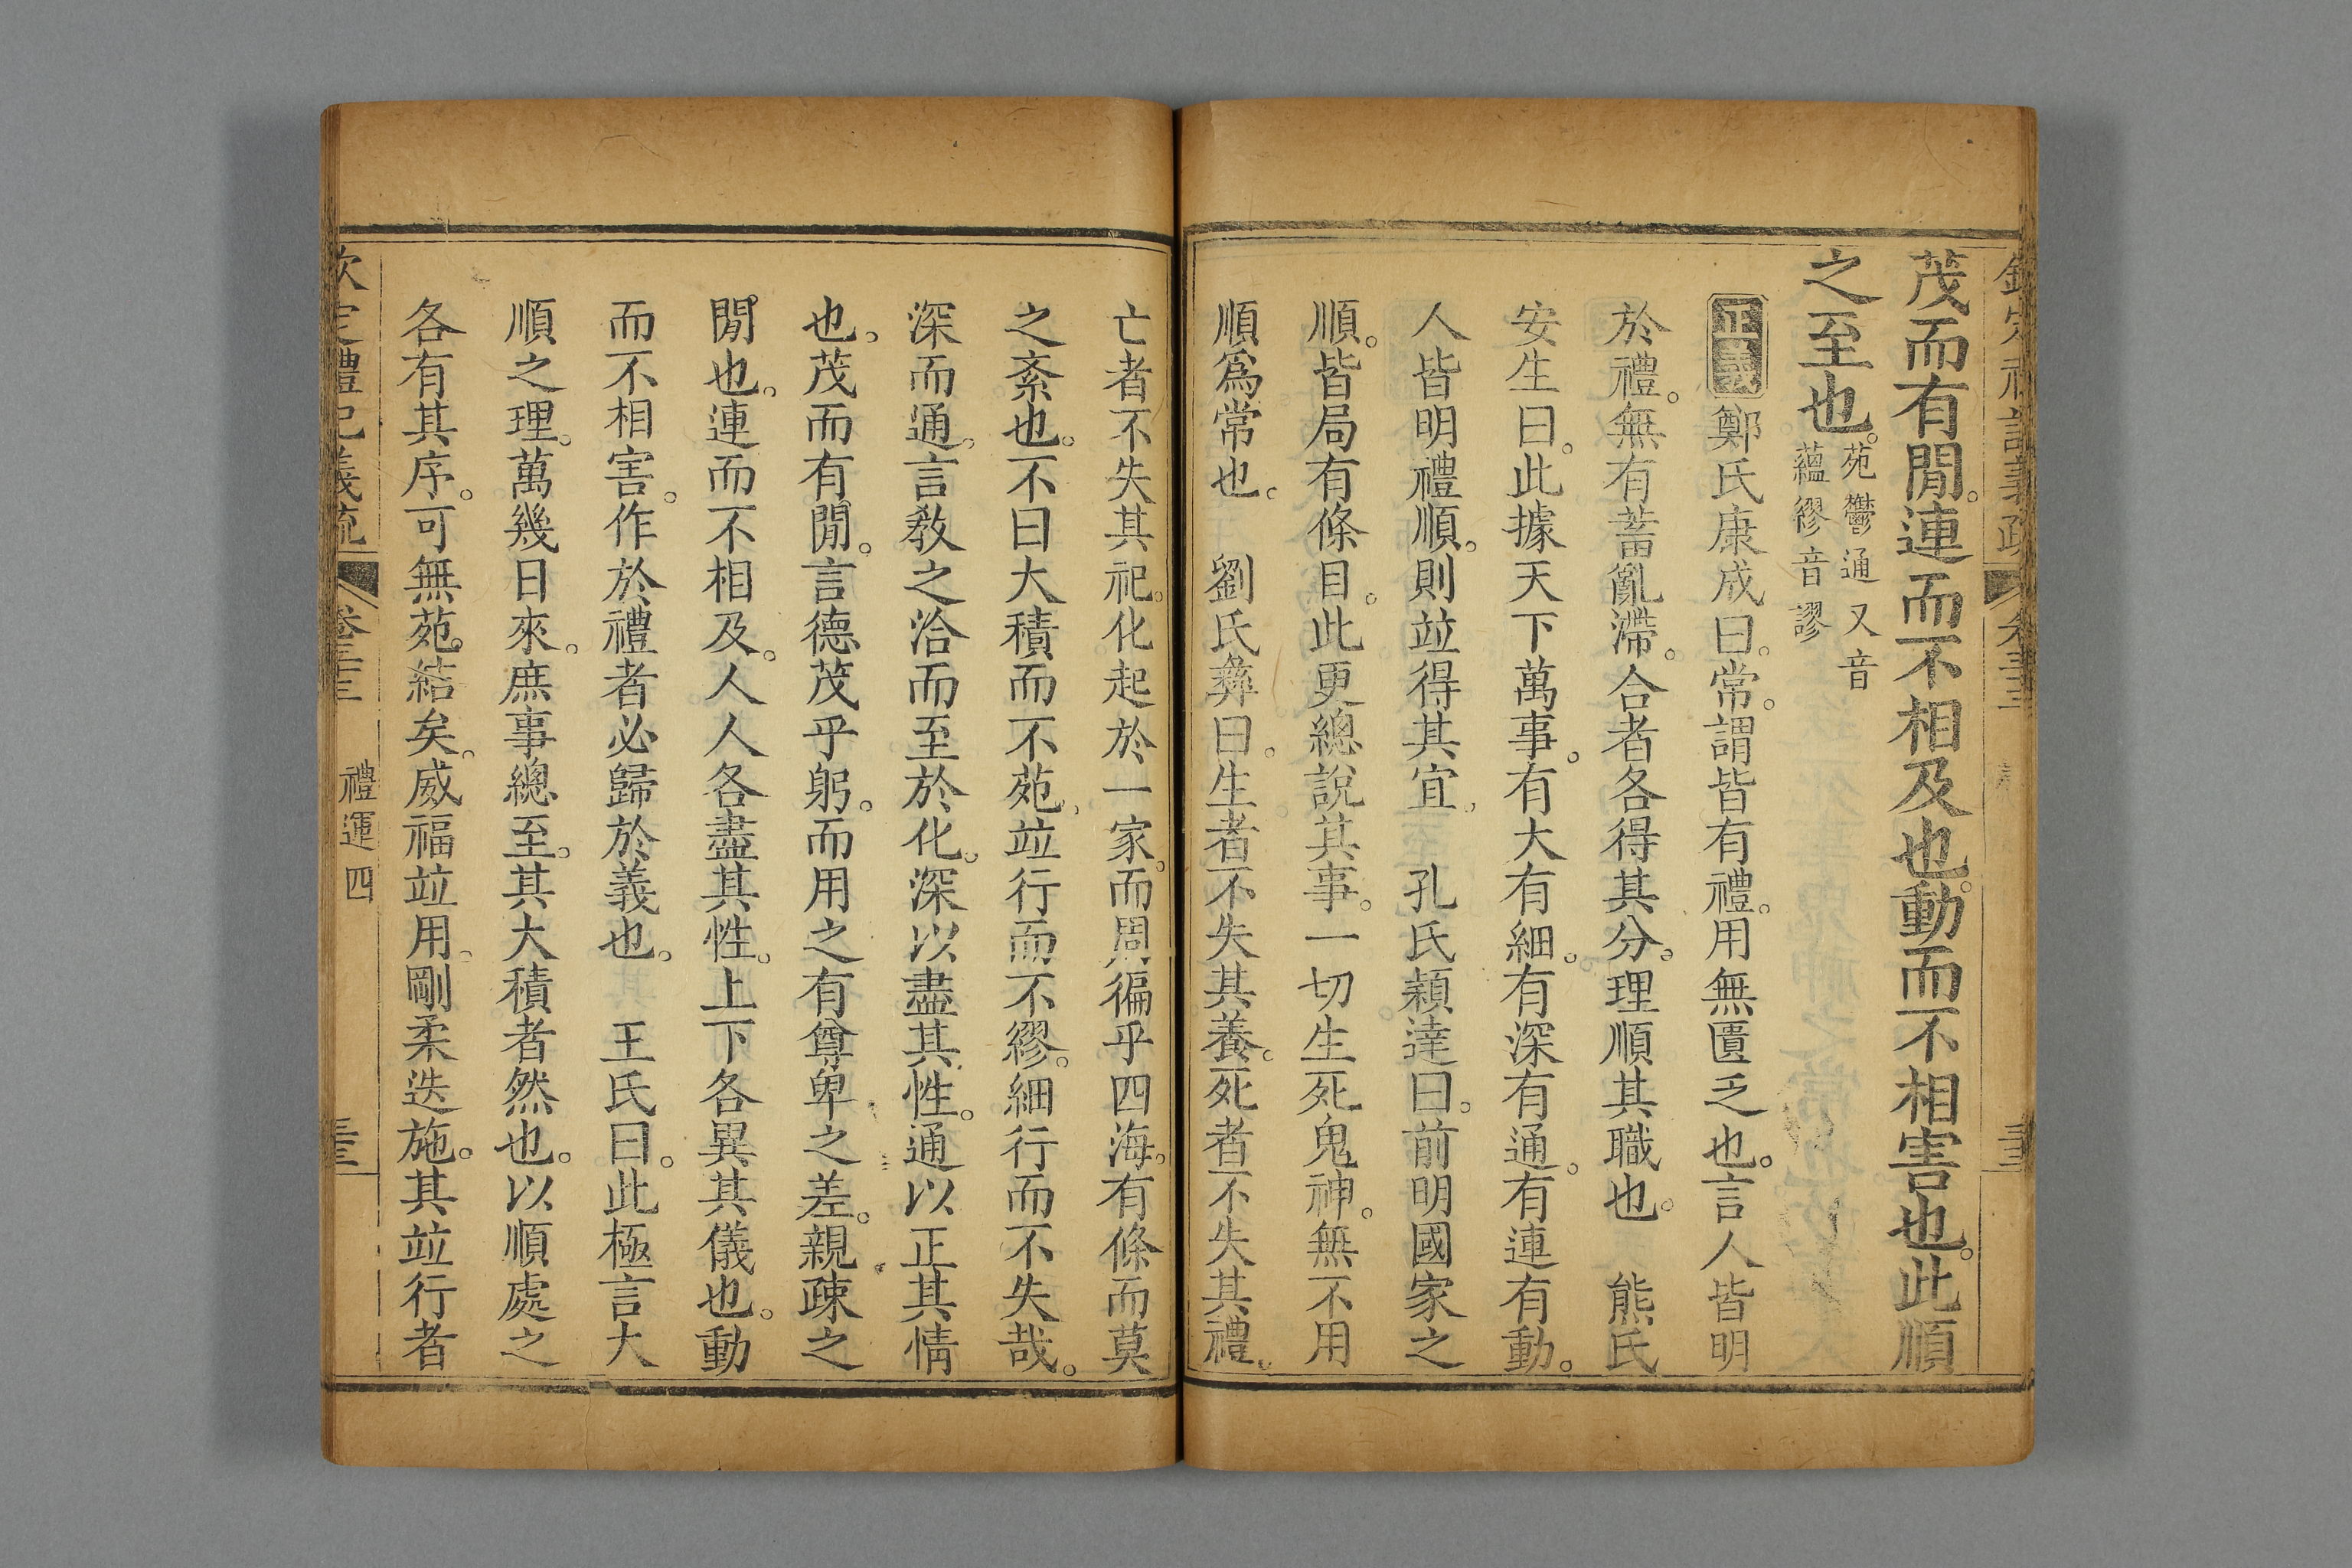 茂而有閒。連而不相及也。動而不相害也。此順
之至也。苑鬱通又音
蘊繆音謬
正義鄭氏康成曰。常。謂皆有禮。用無匱乏也。言人皆明
於禮。無有蓄亂滯。合者各得其分。理順其職也。　熊氏
安生曰。此據天下萬事。有大有細。有深有通。有連有動。
人皆明禮順。則竝得其宜。　孔氏穎達曰。前明國家之
順。皆局有條目。此更總說其事。一切生死鬼神。無不用
順爲常也。　劉氏彝曰。生者不失其養。死者不失其禮。
亡者不失其祀。化起於一家。而周徧乎四海。有條而莫
之紊也。不曰大積而不苑。竝行而不繆。細行而不失哉。
深而通。言敎之洽而至於化。深以盡其性。通以正其情
也。茂而有閒。言德茂乎躬。而用之有尊卑之差。親疎之
閒也。連而不相及。人人各盡其性。上下各異其儀也。動
而不相害。作於禮者必歸於義也。　王氏曰。此極言大
順之理。萬幾日來。庶事總至。其大積者然也。以順處之
各有其序。可無苑結矣。威福竝用。剛柔迭施。其竝行者
欽定禮記義疏　卷三十三　禮運四